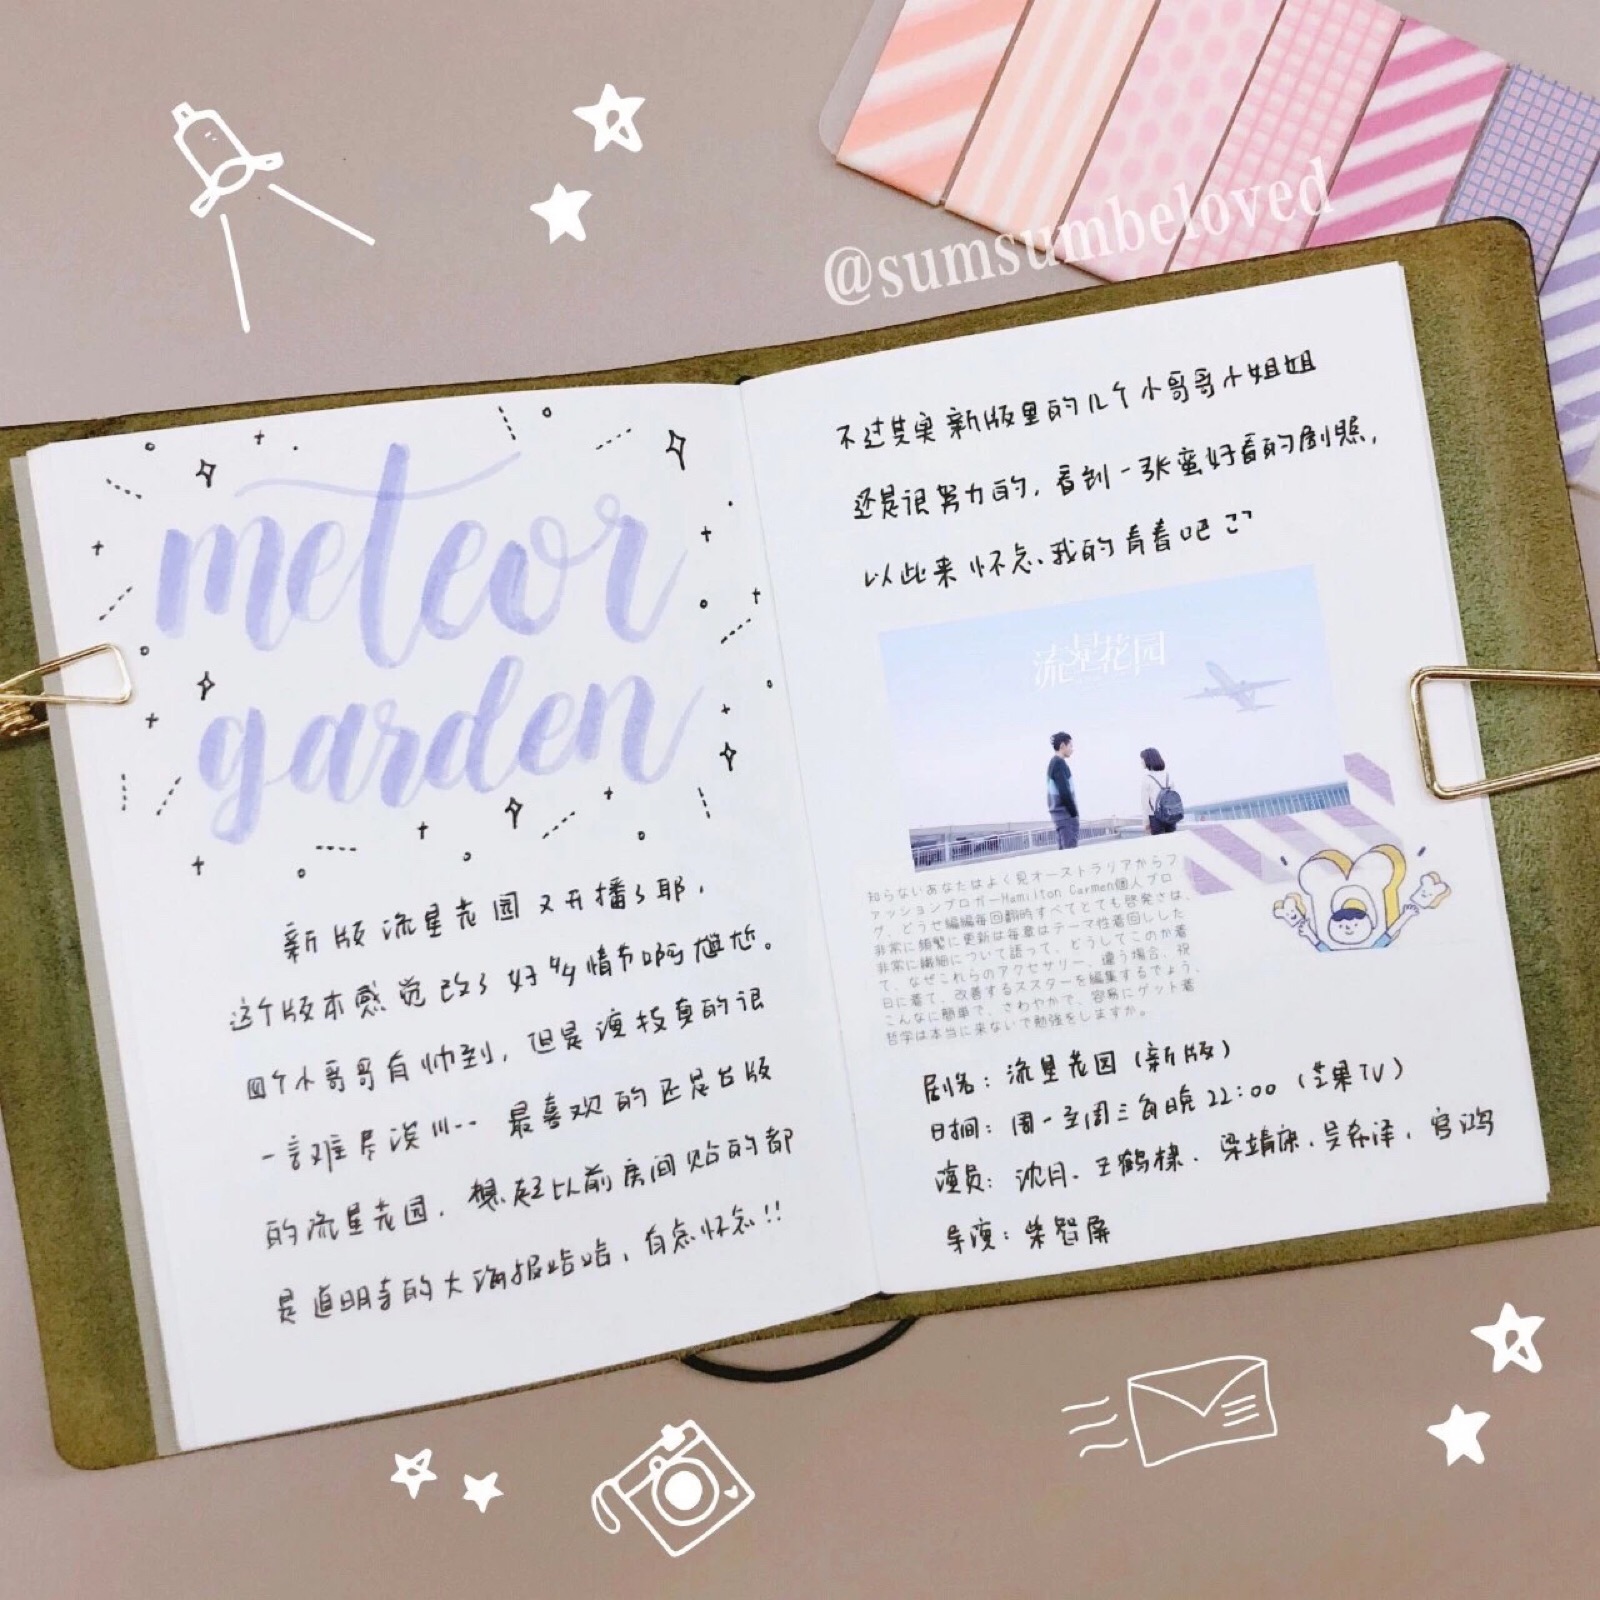 @sumsumbeloved
meteor
garden
新版流星花园又开播了耶，
这个版本感觉改了好多情节啊尴尬。
四个小哥哥有帅到，但是演技真的很
一言难尽诶！！……最喜欢的还是台版
的流星花园，想起以前房间贴的都
是道明寺的大海报哈哈，有点怀念！！
不过其实新版里的几个小哥哥小姐姐
还是很努力的，看到一张蛮好看的剧照，
以此来怀念我的青春吧
流星花园
知らないあなたはよく見オーストラリアからフ
ァッションブロガーHamilton Carmen個人ブロ
グ、どうせ編編毎回翻時すべてとても啓発さは、
非常に頻繁に更新は毎章はテーマ性着回しした
非常に繊細について語って、どうしてこのか着
て、なぜこれらのアクセサリー、違う場合、祝
日に着て、改善するススターを編集するでよう、
こんなに簡単で、さわやかで、容易にゲット着
哲学は本当に来ないで勉強をしますか。
剧名：流星花园（新版）
时间：周一至周三每晚22:00（芒果TV）
演员：沈月、王鹤棣、梁靖康、吴希泽、官鸿
导演：柴智屏